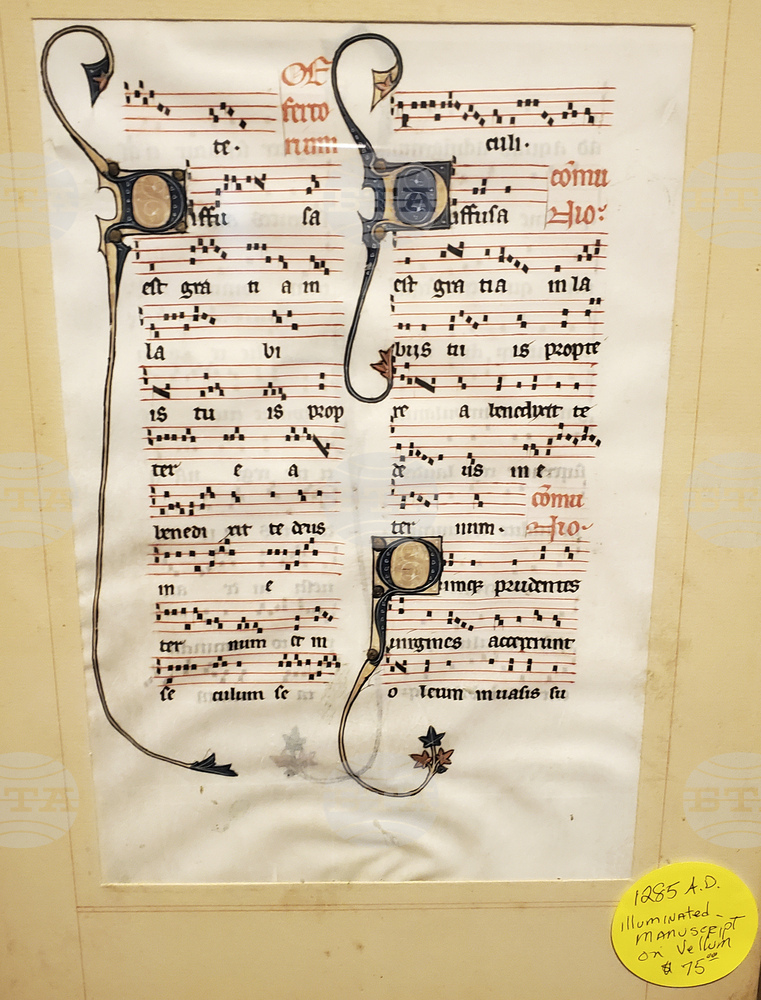 te. Offe
rtorium
Diffu sa
est gra ti a in
la bi
is tu is prop
ter e a
benedi xit te deus
in e
ter num et in
se culum se
culi.
Diffusa cōmu
nio:
est gra tia in la
bijs tu is propte
re a benedixit te
de us in e
ter num. cōmu
nio
Quinqꝫ prudentes
uirgines acceperunt
o leum in uasis su
1285 A.D.
illuminated
MANUSCRIPT
on Vellum
$ 75⁰⁰
БТА